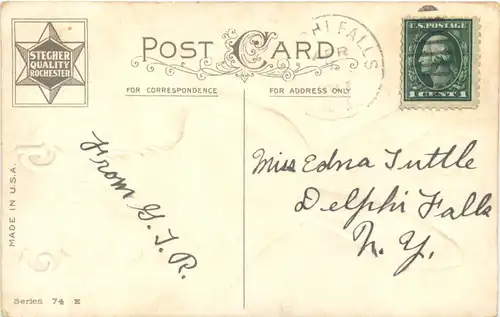 STECHER
QUALITY
ROCHESTER
POST CARD
HI FALLS
U.S. POSTAGE
1 CENT 1
FOR CORRESPONDENCE
FOR ADDRESS ONLY
MADE IN U.S.A.
From G. T. R.
Miss Edna Tuttle
Delphi Falls
N. Y.
Series 74 E